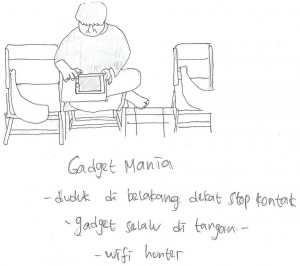 Gadget Mania
- duduk di belakang dekat stop kontak
- gadget selalu di tangan -
- wifi hunter